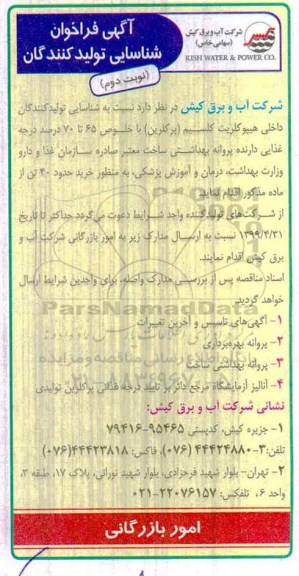 شرکت آب و برق کیش
(سهامی خاص)
KISH WATER & POWER CO.
آگهی فراخوان
شناسایی تولیدکنندگان
(نوبت دوم)
شرکت آب و برق کیش در نظر دارد نسبت به شناسایی تولیدکنندگان
داخلی هیپوکلریت کلسیم (پرکلرین) با خلوص ۶۵ تا ۷۰ درصد درجه
غذایی دارنده پروانه بهداشتی ساخت معتبر صادره سازمان غذا و دارو
وزارت بهداشت، درمان و آموزش پزشکی، به منظور خرید حدود ۴۰ تن از
ماده مذکور اقدام نماید.
از شرکت‌های تولیدکننده واجد شرایط دعوت می‌گردد حداکثر تا تاریخ
۱۳۹۹/۴/۳۱ نسبت به ارسال مدارک زیر به امور بازرگانی شرکت آب و
برق کیش اقدام نمایند.
اسناد مناقصه پس از بررسی مدارک واصله، برای واجدین شرایط ارسال
خواهد گردید.
۱- آگهی‌های تاسیس و آخرین تغییرات
۲- پروانه بهره‌برداری
۳- پروانه بهداشتی ساخت
۴- آنالیز آزمایشگاه مرجع دائر بر تایید درجه غذائی پرکلرین تولیدی
نشانی شرکت آب و برق کیش:
۱- جزیره کیش، کدپستی ۹۵۴۶۵-۷۹۴۱۶
تلفن: ۳-۴۴۴۲۴۸۸۰ (۰۷۶)، فاکس: ۴۴۴۲۳۸۱۸(۰۷۶)
۲- تهران- بلوار شهید فرحزادی، بلوار شهید نورانی، پلاک ۱۷، طبقه ۳،
واحد ۶، تلفکس: ۲۲۰۷۶۱۵۷-۰۲۱
امور بازرگانی
ParsNamadData